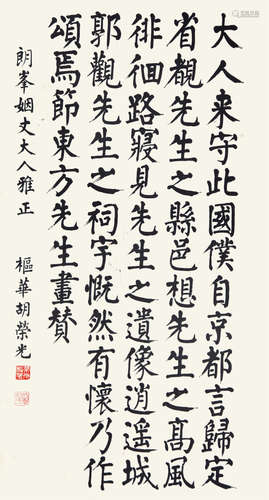 大人来守此國僕自京都言歸定
省覩先生之縣邑想先生之高風
徘徊路寢見先生之遺像逍遥城
郭觀先生之祠宇慨然有懷乃作
頌焉節東方先生畫贊
朗峯姻丈大人雅正
樞華胡榮光